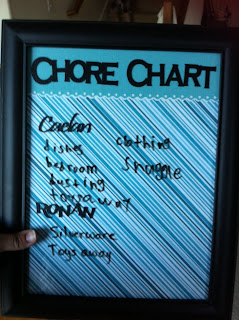 CHORE CHART
Caelan
dishes clothing
bedroom Snuggle
dusting
toys away
RONAN
Silverware
Toys away